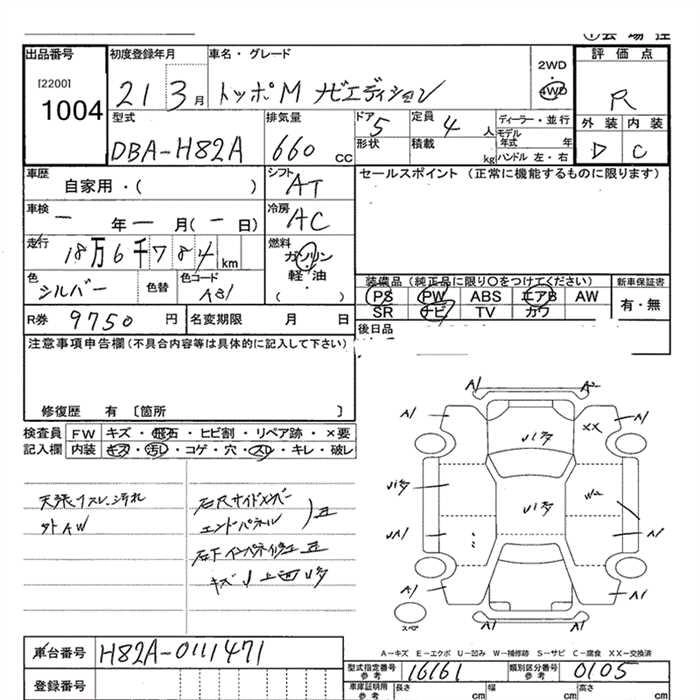 出品番号 初度登録年月 車名・グレード 2WD 4WD 評価点
[2200]
1004
21 3月 トッポM ナビエディション R
型式 排気量 ドア 定員 ディーラー・並行 外装 内装
DBA-H82A 660 CC 5 4人 モデル年式 年 D C
形状 積載 kg ハンドル 左・右
車歴 自家用・( ) シフト AT セールスポイント (正常に機能するものに限ります)
車検 一 年 一 月(一 日) 冷房 AC
走行 18万6千784 km 燃料 ガソリン 軽・油 ( )
色 シルバー 色替 色コード A31
装備品 (純正品に限り○をつけてください) 新車保証書
PS PW ABS エアB AW 有・無
SR ナビ TV カワ
R券 9750 円 名変期限 月 日 後日品
注意事項申告欄(不具合内容等は具体的に記入して下さい)
修復歴 有 〔箇所 〕
検査員 FW キズ・飛石・ヒビ割・リペア跡・×要
記入欄 内装 キズ・汚レ・コゲ・穴・スレ・キレ・破レ
天張リスレ、汚れ
外AW
右Rサイドメンバー
エンドパネル
右下インパネ修正
キズ
A1 A2
A1 A1
XX
U1 U1 W2
A1 A1
A1 A1
A1
スペア
A-キズ E-エクボ U-凹み W-補修跡 S-サビ C-腐食 XX-交換済
車台番号 H82A-0111471
型式指定番号 参考 16161 類別区分番号 参考 0105
登録番号 車庫証明用 参考 長さ cm 幅 cm 高さ cm